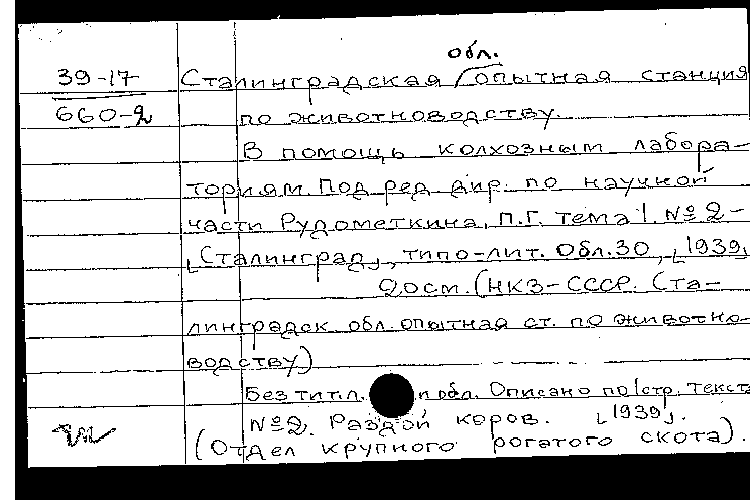 обл.
39-17 Сталинградская опытная станция
660-2 по животноводству.
В помощь колхозным лабора-
ториям. Под ред. дир. по научной
части Рудометкина, П.Г. тема 1. № 2-
[Сталинград], типо-лит. Обл.ЗО, [1939]
20см. (НКЗ-СССР. Ста-
линградск. обл. опытная ст. по животно-
водству)
Без тит.л. и обл. Описано по 1 стр. текста
№2. Раздой коров. [1939].
(Отдел крупного рогатого скота).